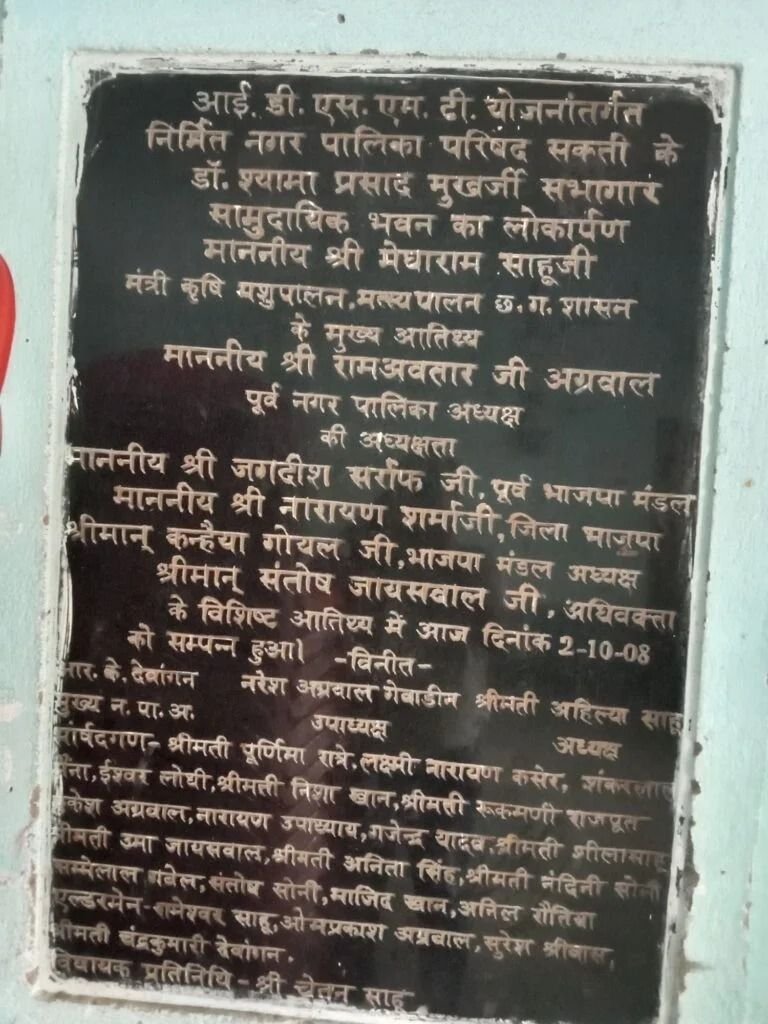 आई. डी. एस. एम. टी. योजनांतर्गत
निर्मित नगर पालिका परिषद सकती के
डॉ. श्यामा प्रसाद मुखर्जी सभागार
सामुदायिक भवन का लोकार्पण
माननीय श्री मेघाराम साहूजी
मंत्री कृषि पशुपालन,मत्स्यपालन छ.ग.शासन
के मुख्य आतिथ्य
माननीय श्री रामअवतार जी अग्रवाल
पूर्व नगर पालिका अध्यक्ष
की अध्यक्षता
माननीय श्री जगदीश सर्राफ जी, पूर्व भाजपा मंडल
माननीय श्री नारायण शर्माजी, जिला भाजपा
श्रीमान् कन्हैया गोयल जी,भाजपा मंडल अध्यक्ष
श्रीमान् संतोष जायसवाल जी, अधिवक्ता
के विशिष्ट आतिथ्य में आज दिनांक 2-10-08
को सम्पन्न हुआ। -विनीत-
आर. के. देवांगन नरेश अग्रवाल गेवाडीन श्रीमती अहिल्या साहू
मुख्य न. पा. अ. उपाध्यक्ष अध्यक्ष
पार्षदगण- श्रीमती पूर्णिमा रात्रे, लक्ष्मी नारायण कसेर, शंकरलाल
ईश्वर लोधी,श्रीमती निशा खान,श्रीमती रूकमणी राजपूत
अग्रवाल,नारायण उपाध्याय,गजेन्द्र यादव,श्रीमती शीलासाहू
श्रीमती उमा जायसवाल,श्रीमती अनिता सिंह,श्रीमती नंदिनी सोनी
सम्मेलाल गबेल,संतोष सोनी,माजिद खान,अनिल
एल्डरमेन-रामेश्वर साहू,ओमप्रकाश अग्रवाल,सुरेश श्रीवास,
श्रीमती चंद्रकुमारी देवांगन.
विधायक प्रतिनिधि - श्री चेतन साहू